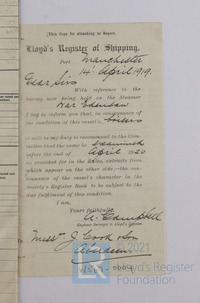 (This Copy for attaching to Report.
Lloyd's Register of Shipping,
Port Manchester
14th April 1919.
Dear Sirs
With reference to the
survey now being held on the Steamer
War
I beg to inform you that, in consequence of
the condition of this vessel's boilers
it will be my duty to recommend to the Com-
mittee that the same be examined
before the end of April 1920
as provided for in the Rules, extracts from
which appear on the other side,—the con-
tinuance of the vessel's character in the
Society's Register Book to be subject to the
due fulfilment of this condition.
I am,
Yours faithfully,
A. Campbell
Engineer Surveyor to Lloyd's Register.
Messrs J. Cook & Son
Aberdeen
© 2021
Lloyd's Register
Foundation